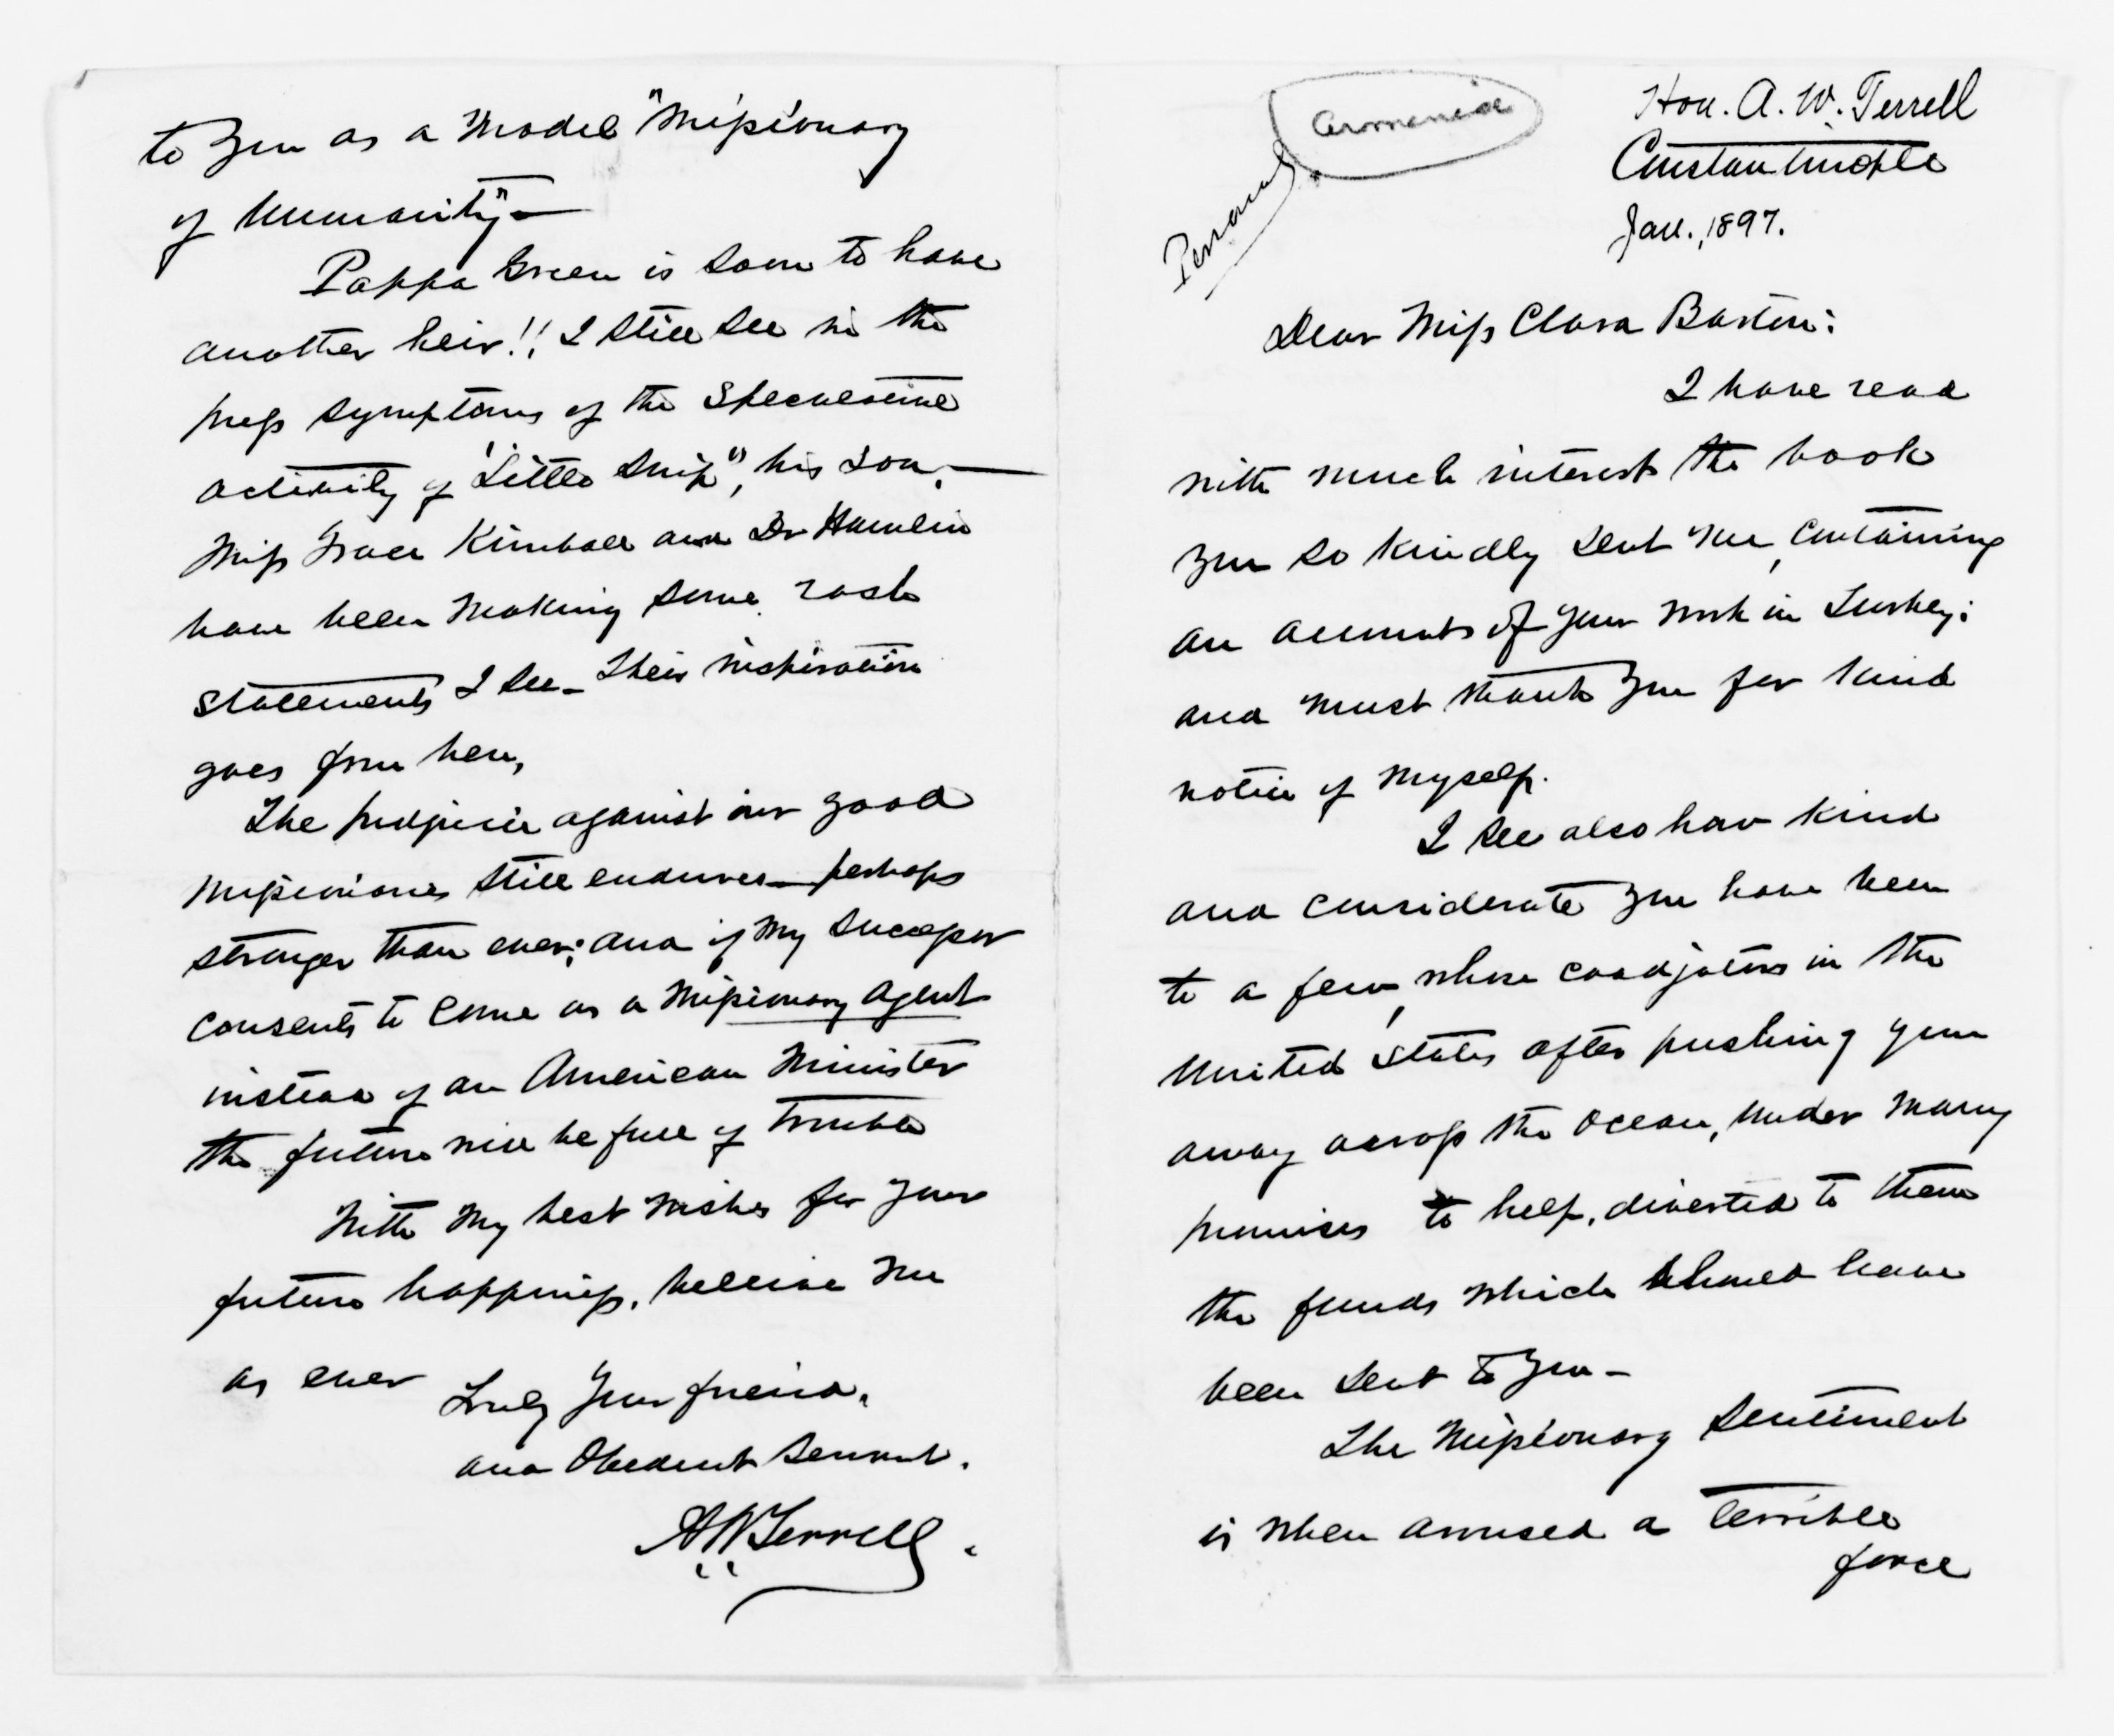 Armenia
Personal
Hon. A. W. Terrell
Constantinople
Jan., 1897.
Dear Miss Clara Barton:
I have read
with much interest the book
you so kindly sent me, containing
an account of your work in Turkey:
and must thank you for kind
notice of myself.
I see also how kind
and considerate you have been
to a few, whose coadjutors in the
United States after pushing you
away across the Ocean, under many
promises to help, diverted to them
the funds which should have
been sent to you—
The Missionary sentiment
is when aroused a terrible
force
to you as a Model "Missionary
of Humanity"—
Pappa Green is soon to have
another heir!! I still see in the
press symptoms of the speculative
activity of "Little Snip", his son.—
Miss Grace Kimball and Dr Hamlin
have been making some rash
statements I see— Their inspiration
goes from here,
The prejudice against our good
Missionaries still endures—perhaps
stronger than ever; and if my successor
consents to come as a Missionary Agent
instead of an American Minister
the future will be full of trouble
With my best wishes for your
future happiness, believe me
as ever
Truly Your friend,
and Obedient Servant.
A.W. Terrell.